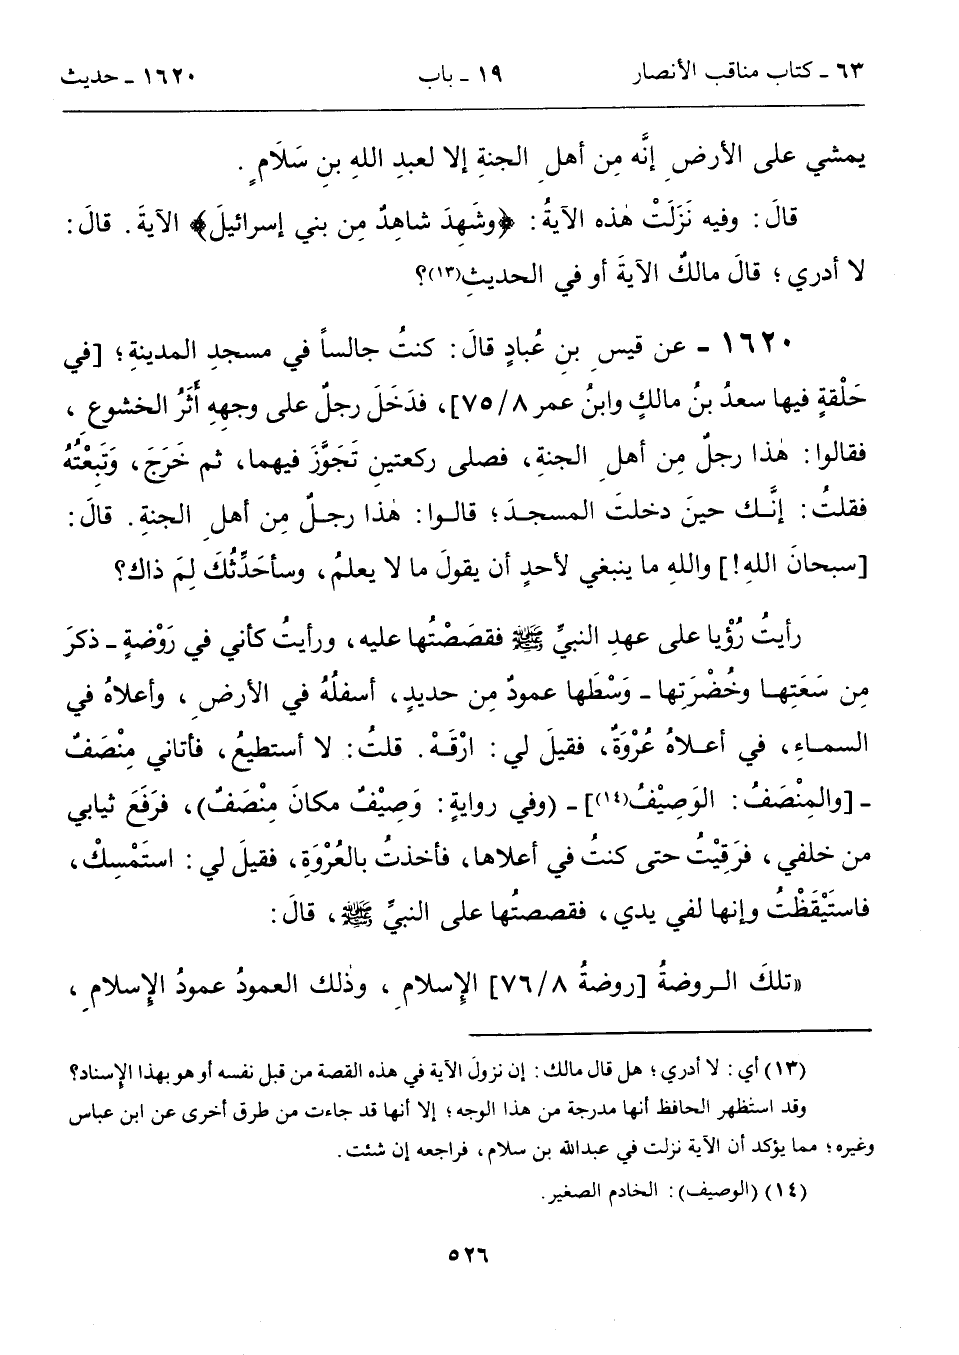 ٦٣ ـ كتاب مناقب الأنصار ١٩ ـ باب ١٦٢٠ ـ حديث
يمشي على الأرضِ إنَّه مِن أهلِ الجنةِ إلا لعبدِ اللهِ بنِ سَلَامٍ.
قالَ: وفيه نَزَلَتْ هٰذه الآيةُ: ﴿وشَهِدَ شاهِدٌ مِن بني إسرائيلَ﴾ الآيةَ. قالَ:
لا أدري؛ قالَ مالكٌ الآيةَ أو في الحديثِ(١٣)؟
١٦٢٠ ـ عن قيسِ بنِ عُبادٍ قالَ: كنتُ جالساً في مسجدِ المدينةِ؛ [في
حَلْقةٍ فيها سعدُ بنُ مالكٍ وابنُ عمر ٨/ ٧٥]، فدَخَلَ رجلٌ على وجهِهِ أَثَرُ الخشوعِ،
فقالوا: هٰذا رجلٌ مِن أهلِ الجنةِ، فصلى ركعتينِ تَجَوَّزَ فيهما، ثم خَرَجَ، وَتَبِعْتُهُ
فقلتُ: إنَّك حينَ دخلتَ المسجدَ؛ قالوا: هٰذا رجلٌ مِن أهلِ الجنةِ. قالَ:
[سبحانَ اللهِ!] واللهِ ما ينبغي لأحدٍ أن يقولَ ما لا يعلمُ، وسأحَدِّثُكَ لِمَ ذاك؟
رأيتُ رُؤْيا على عهدِ النبيِّ ﷺ فقصَصْتُها عليه، ورأيتُ كأني في رَوْضةٍ ـ ذكرَ
مِن سَعَتِها وخُضْرَتِها ـ وَسْطَها عمودٌ مِن حديدٍ، أسفلُهُ في الأرضِ، وأعلاهُ في
السماءِ، في أعلاهُ عُرْوَةٌ، فقيلَ لي: ارْقَهْ. قلتُ: لا أستطيعُ، فأتاني مِنْصَفٌ
ـ [والمِنْصَفُ: الوَصِيْفُ(١٤)] ـ (وفي روايةٍ: وَصِيْفٌ مكانَ مِنْصَفٌ)، فرَفَعَ ثيابي
من خلفي، فرَقِيْتُ حتى كنتُ في أعلاها، فأخذتُ بالعُرْوَةِ، فقيلَ لي: استَمْسِكْ،
فاستَيْقَظْتُ وإنها لفي يدي، فقصصتُها على النبيِّ ﷺ، قالَ:
«تلكَ الروضةُ [روضةُ ٨/ ٧٦] الإسلامِ، وذٰلك العمودُ عمودُ الإسلامِ،
(١٣) أي: لا أدري؛ هل قال مالك: إن نزولَ الآية في هذه القصة من قبل نفسه أو هو بهذا الإسناد؟
وقد استظهر الحافظ أنها مدرجة من هذا الوجه؛ إلا أنها قد جاءت من طرق أخرى عن ابن عباس
وغيره؛ مما يؤكد أن الآية نزلت في عبدالله بن سلام، فراجعه إن شئت.
(١٤) (الوصيف): الخادم الصغير.
٥٢٦